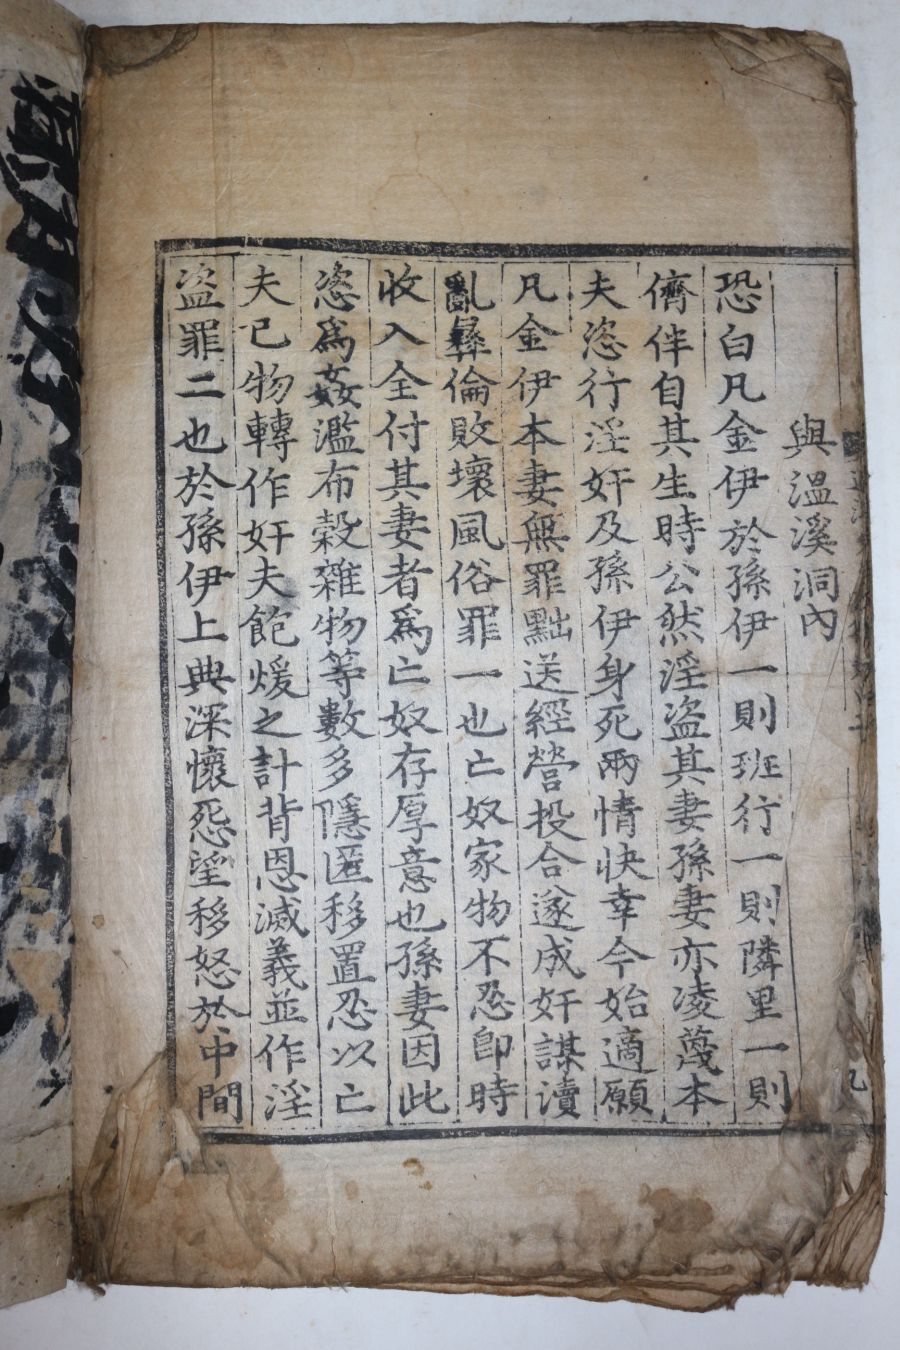 與溫溪洞內
恐白凡金伊於孫伊一則班行一則隣里一則
儕伴自其生時公然淫盜其妻孫妻亦凌蔑本
夫恣行淫奸及孫伊身死兩情快幸今始適願
凡金伊本妻無罪黜送經營投合遂成奸謀瀆
亂彝倫敗壞風俗罪一也亡奴家物不忍卽時
收入全付其妻者爲亡奴存厚意也孫妻因此
恣爲姦濫布穀雜物等數多隱匿移置忍以亡
夫已物轉作奸夫飽煖之計背恩滅義並作淫
盜罪二也於孫伊上典深懷怨望移怒於中間